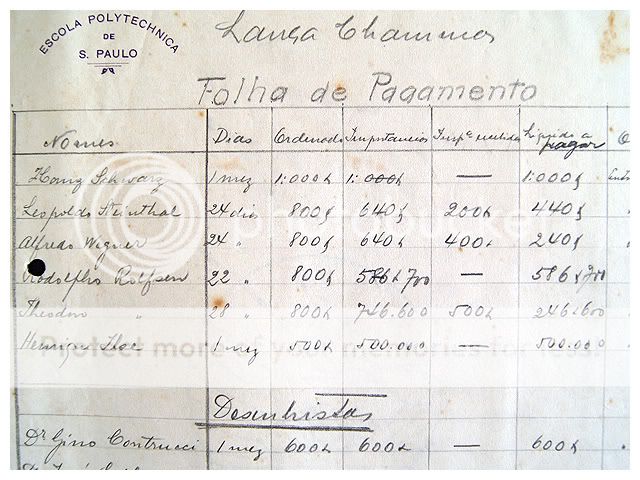 ESCOLA POLYTECHNICA
DE
S. PAULO
Folha de Pagamento
Nomes Dias Ordenado Importancias Líquido a pagar
Schwarz 1 mez 1:000$ 1:000$ — 1:000$
Leopoldo 24 dias 800$ 640$ 200$ 440$
Alfredo Wigner 24 " 800$ 640$ 400$ 240$
Rodolpho Rolfsen 22 " 800$ 586$700 — 586$700
Theodoro " 28 " 800$ 746.600 500$ 246$600
1 mez 500$ 500.000 — 500.000
Protect more of your memories for less.
Desenhistas
Dr Gino Contrucci 1 mez 600$ 600$ — 600$